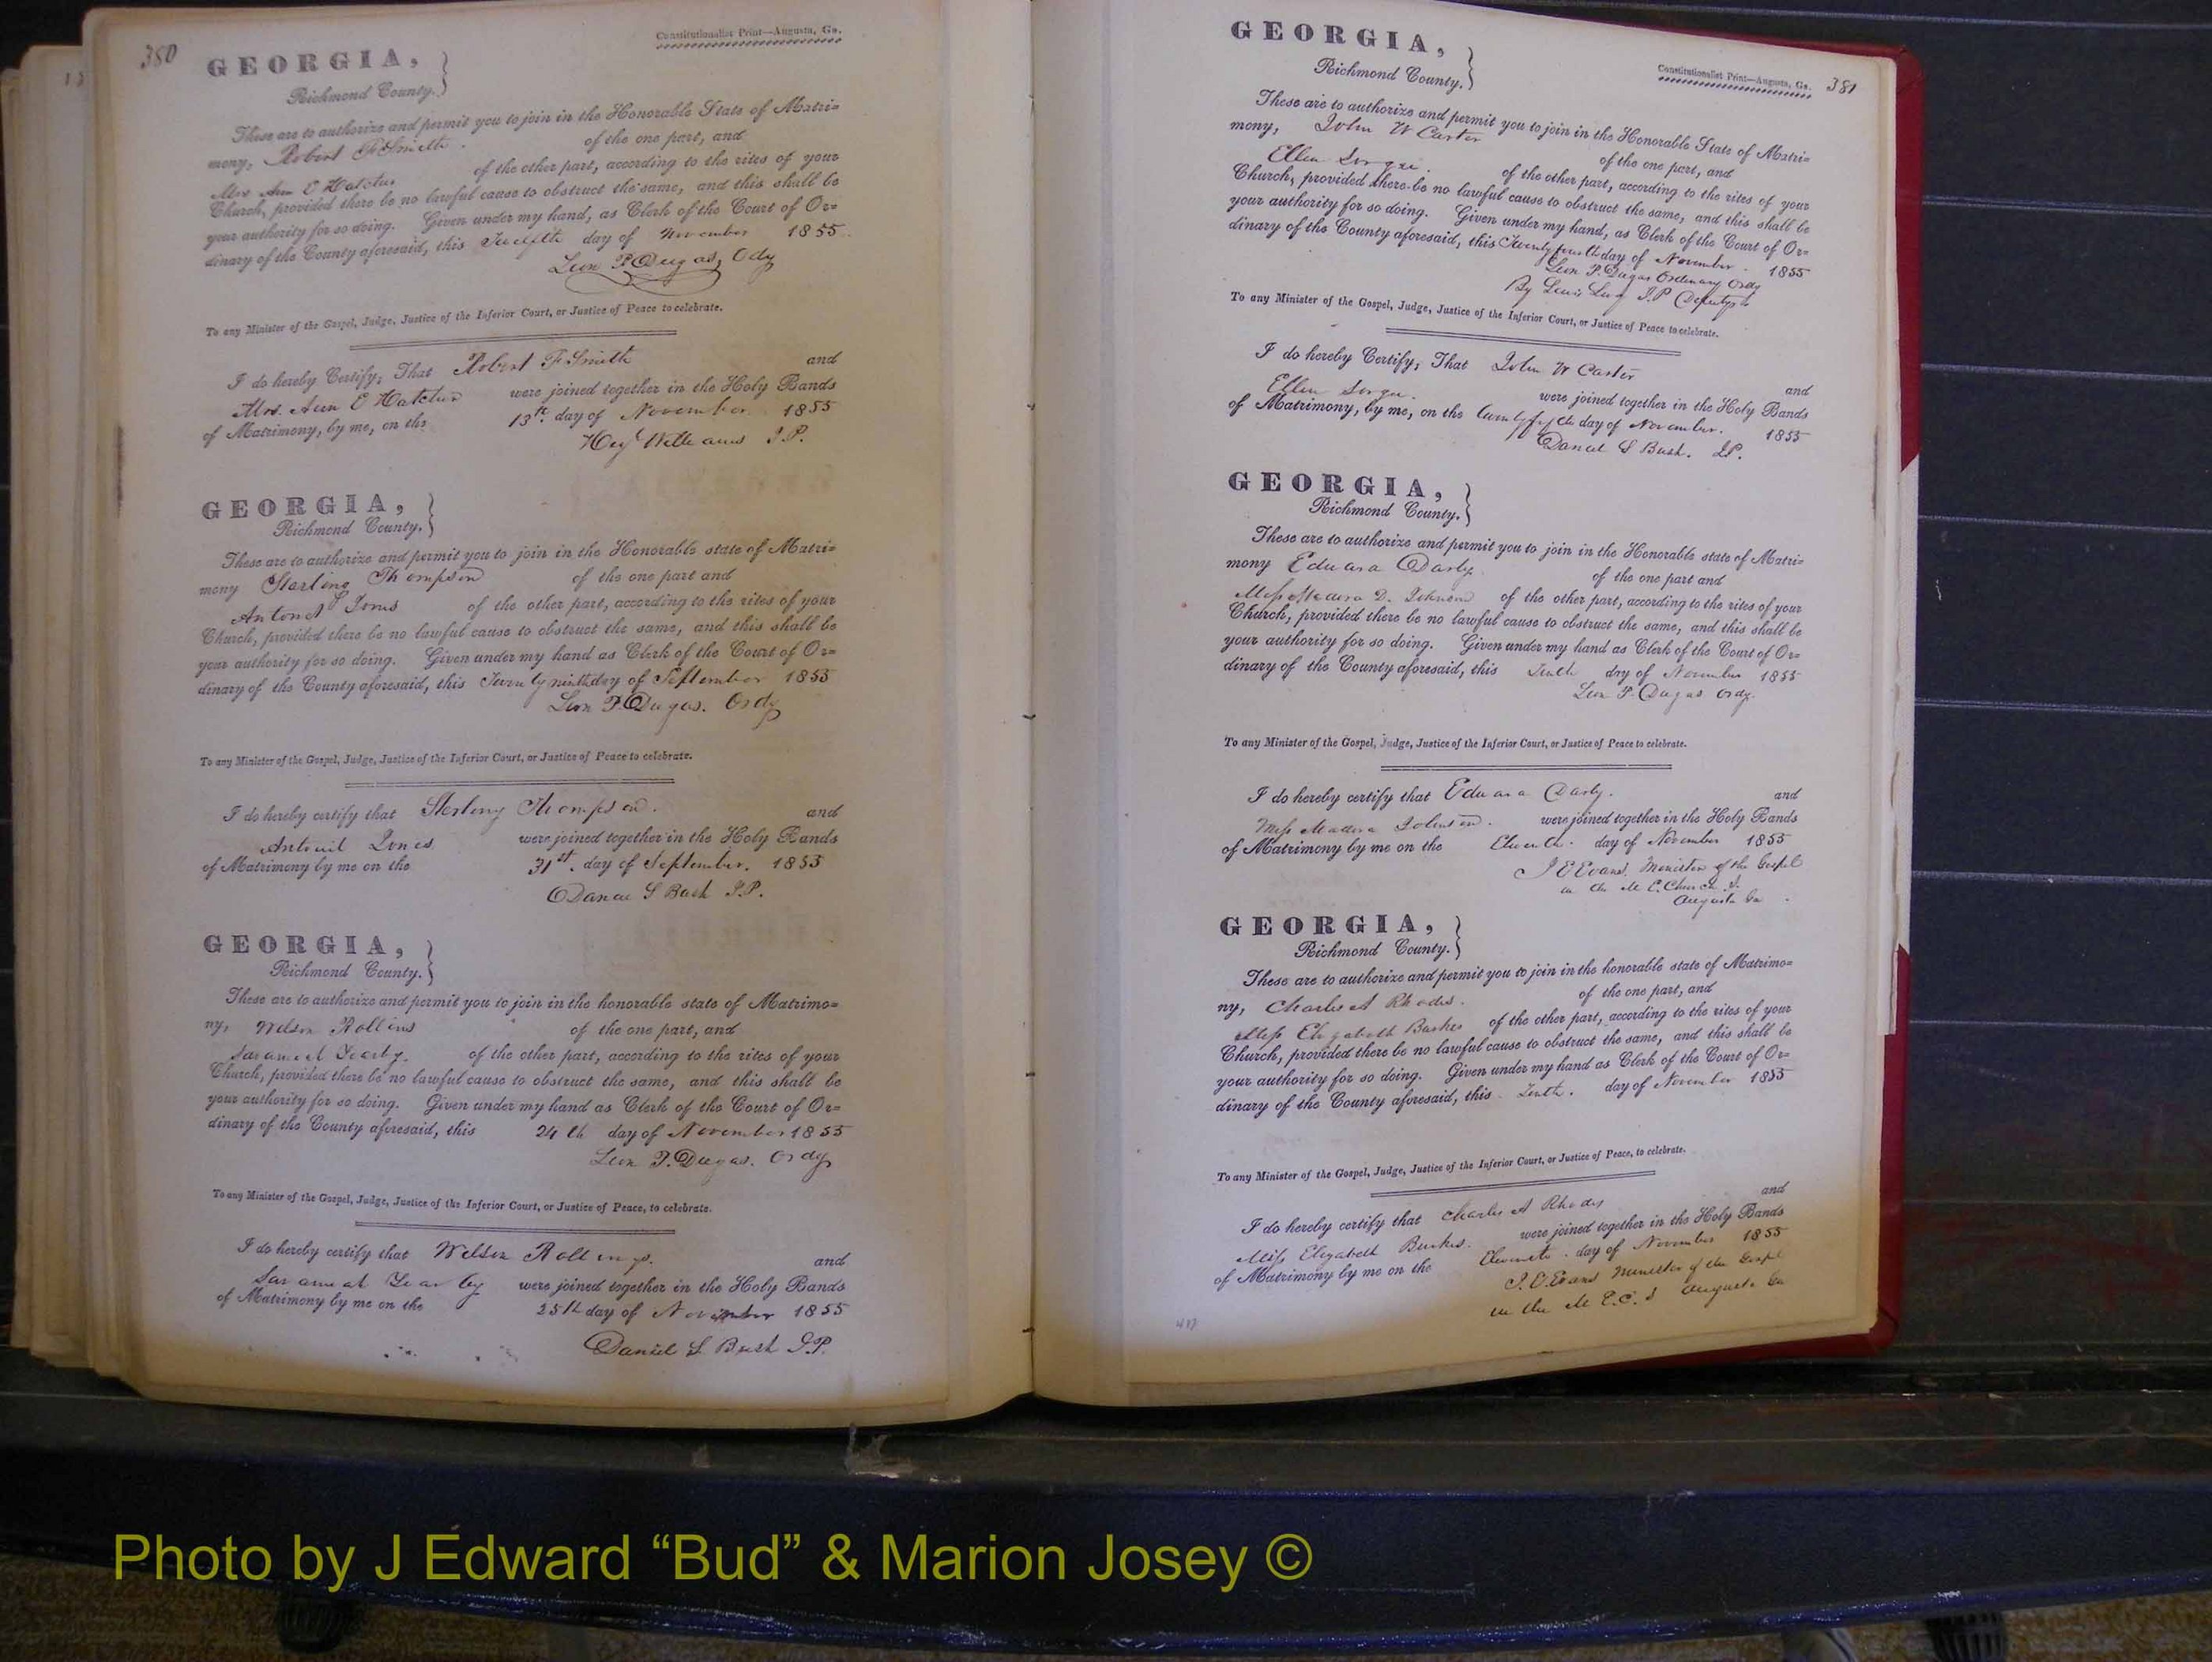 380
Constitutionalist Print—Augusta, Ga.
GEORGIA,
Richmond County.
These are to authorize and permit you to join in the Honorable State of Matri=
mony, Robert F Smith of the one part, and
Mrs Ann E Hatcher of the other part, according to the rites of your
Church, provided there be no lawful cause to obstruct the same, and this shall be
your authority for so doing. Given under my hand, as Clerk of the Court of Or=
dinary of the County aforesaid, this Twelfth day of November 1855
Leon P. Dugas, Ordy
To any Minister of the Gospel, Judge, Justice of the Inferior Court, or Justice of Peace to celebrate.
I do hereby Certify, That Robert F Smith and
Mrs. Ann E Hatcher were joined together in the Holy Bands
of Matrimony, by me, on the 13th day of November 1855
Williams J.P.
GEORGIA,
Richmond County.
These are to authorize and permit you to join in the Honorable state of Matri=
mony Sterling Thompson of the one part and
P Jones of the other part, according to the rites of your
Church, provided there be no lawful cause to obstruct the same, and this shall be
your authority for so doing. Given under my hand as Clerk of the Court of Or=
dinary of the County aforesaid, this Twenty ninth day of September 1855
Leon P. Dugas. Ordy
To any Minister of the Gospel, Judge, Justice of the Inferior Court, or Justice of Peace to celebrate.
I do hereby certify that Sterling Thompson. and
Jones were joined together in the Holy Bands
of Matrimony by me on the 31st. day of September. 1855
Daniel S Bush J.P.
GEORGIA,
Richmond County.
These are to authorize and permit you to join in the honorable state of Matrimo=
ny, Wilson Rollins of the one part, and
Yearby. of the other part, according to the rites of your
Church, provided there be no lawful cause to obstruct the same, and this shall be
your authority for so doing. Given under my hand as Clerk of the Court of Or=
dinary of the County aforesaid, this 24th day of November 1855
Leon P. Dugas. Ordy
To any Minister of the Gospel, Judge, Justice of the Inferior Court, or Justice of Peace, to celebrate.
I do hereby certify that Wilson Rollings. and
Yearby were joined together in the Holy Bands
of Matrimony by me on the 25th day of November 1855
Daniel S. Bush J.P.
GEORGIA,
Richmond County.
Constitutionalist Print—Augusta, Ga.
381
These are to authorize and permit you to join in the Honorable State of Matri=
mony, John W Carter of the one part, and
Ellen of the other part, according to the rites of your
Church, provided there be no lawful cause to obstruct the same, and this shall be
your authority for so doing. Given under my hand, as Clerk of the Court of Or=
dinary of the County aforesaid, this Twenty fourth day of November 1855
Leon P. Dugas Ordinary Ordy
By Lewis Levy J.P Deputy
To any Minister of the Gospel, Judge, Justice of the Inferior Court, or Justice of Peace to celebrate.
I do hereby Certify, That John W Carter and
Ellen were joined together in the Holy Bands
of Matrimony, by me, on the twenty fifth day of November. 1855
Daniel S Bush. J.P.
GEORGIA,
Richmond County.
These are to authorize and permit you to join in the Honorable state of Matri=
mony Edward Darby of the one part and
Miss Madora D. Johnson of the other part, according to the rites of your
Church, provided there be no lawful cause to obstruct the same, and this shall be
your authority for so doing. Given under my hand as Clerk of the Court of Or=
dinary of the County aforesaid, this Tenth day of November 1855
Leon P. Dugas Ordy.
To any Minister of the Gospel, Judge, Justice of the Inferior Court, or Justice of Peace to celebrate.
I do hereby certify that Edward Darby. and
Miss Madora Johnson. were joined together in the Holy Bands
of Matrimony by me on the Eleventh. day of November 1855
J E Evans. Minister of the Gospel
in the M E. Church S.
Augusta Ga
GEORGIA,
Richmond County.
These are to authorize and permit you to join in the honorable state of Matrimo=
ny, Charles A Rhodes. of the one part, and
Miss Elizabeth of the other part, according to the rites of your
Church, provided there be no lawful cause to obstruct the same, and this shall be
your authority for so doing. Given under my hand as Clerk of the Court of Or=
dinary of the County aforesaid, this Tenth. day of November 1855
To any Minister of the Gospel, Judge, Justice of the Inferior Court, or Justice of Peace, to celebrate.
I do hereby certify that Charles A Rhodes and
Miss Elizabeth were joined together in the Holy Bands
of Matrimony by me on the Eleventh. day of November 1855
J. E. Evans Minister of the Gospel
in the M E.C. S Augusta Ga
Photo by J Edward “Bud” & Marion Josey ©